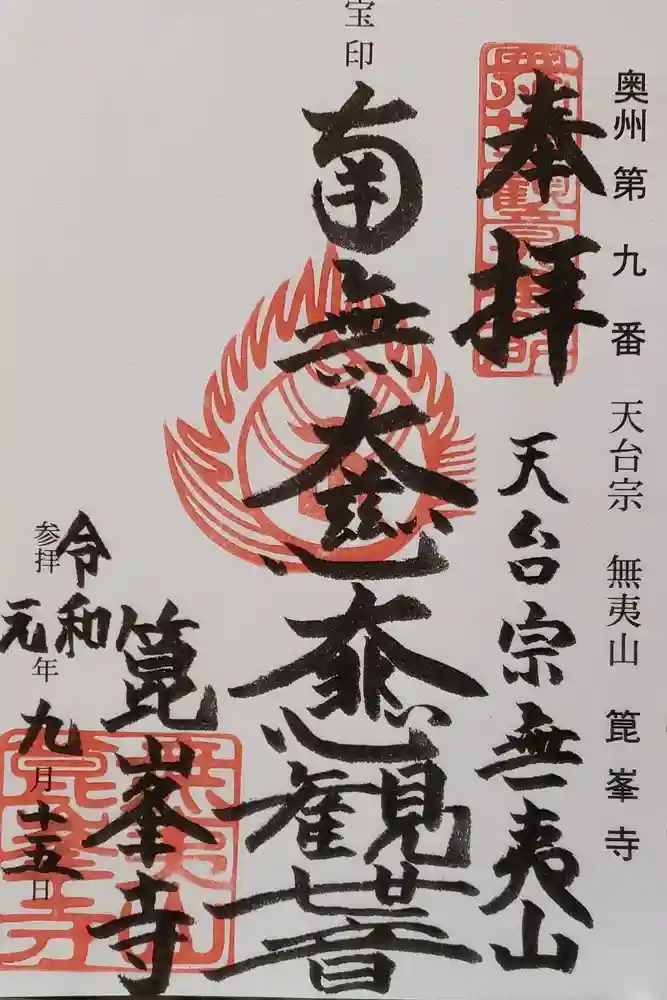 奥州第九番 天台宗 無夷山 箟峯寺
奉拝
天台宗無夷山
宝印
南無大慈大悲観世音
箟峯寺
参拝
令和元年九月十五日
無夷山箟峯寺